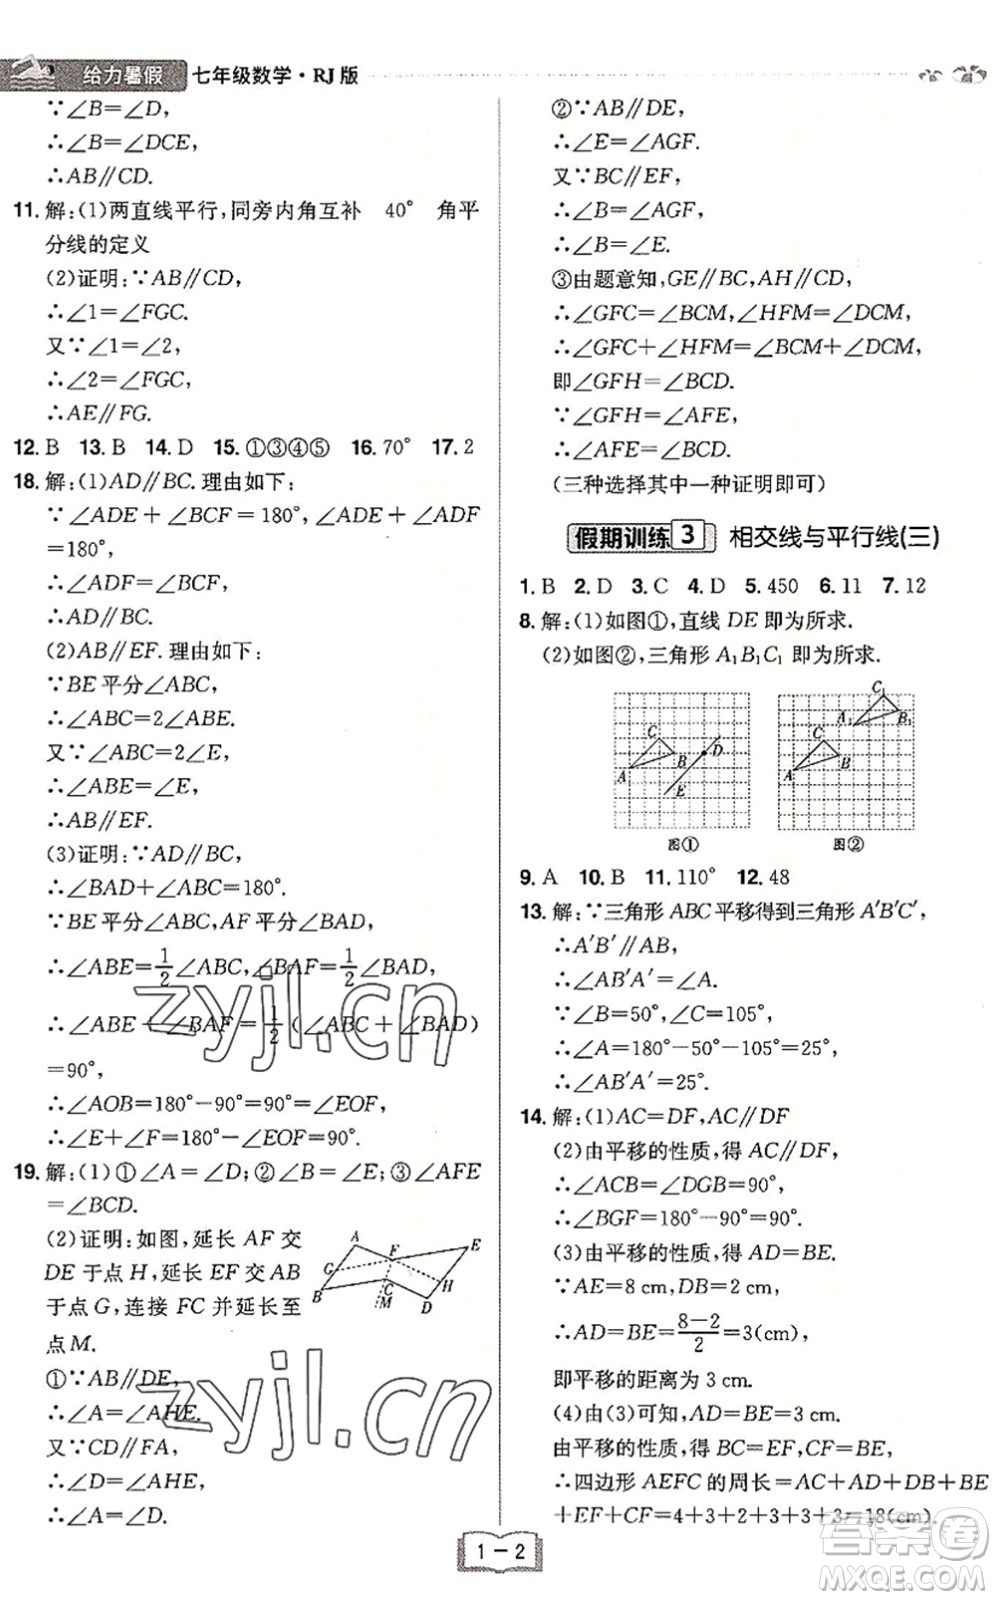 给力暑假 七年级数学·RJ版
∵∠B=∠D,
∴∠B=∠DCE,
∴AB∥CD.
11. 解:(1)两直线平行,同旁内角互补 40° 角平
分线的定义
(2)证明:∵AB∥CD,
∴∠1=∠FGC.
又∵∠1=∠2,
∴∠2=∠FGC,
∴AE∥FG.
12. B 13. B 14. D 15. ①③④⑤ 16. 70° 17. 2
18. 解:(1)AD∥BC.理由如下:
∵∠ADE+∠BCF=180°,∠ADE+∠ADF
=180°,
∴∠ADF=∠BCF,
∴AD∥BC.
(2)AB∥EF.理由如下:
∵BE平分∠ABC,
∴∠ABC=2∠ABE.
又∵∠ABC=2∠E,
∴∠ABE=∠E,
∴AB∥EF.
(3)证明:∵AD∥BC,
∴∠BAD+∠ABC=180°.
∵BE平分∠ABC,AF平分∠BAD,
∴∠ABE=1/2∠ABC,∠BAF=1/2∠BAD,
∴∠ABE+∠BAF=1/2(∠ABC+∠BAD)
=90°,
∴∠AOB=180°-90°=90°=∠EOF,
∴∠E+∠F=180°-∠EOF=90°.
19. 解:(1)①∠A=∠D;②∠B=∠E;③∠AFE
=∠BCD.
(2)证明:如图,延长AF交
DE于点H,延长EF交AB
于点G,连接FC并延长至
点M.
A F E G B C H M D
①∵AB∥DE,
∴∠A=∠AHE.
又∵CD∥FA,
∴∠D=∠AHE,
∴∠A=∠D.
②∵AB∥DE,
∴∠E=∠AGF.
又∵BC∥EF,
∴∠B=∠AGF,
∴∠B=∠E.
③由题意知,GE∥BC,AH∥CD,
∴∠GFC=∠BCM,∠HFM=∠DCM,
∴∠GFC+∠HFM=∠BCM+∠DCM,
即∠GFH=∠BCD.
∵∠GFH=∠AFE,
∴∠AFE=∠BCD.
(三种选择其中一种证明即可)
假期训练3 相交线与平行线(三)
1. B 2. D 3. C 4. D 5. 450 6. 11 7. 12
8. 解:(1)如图①,直线DE即为所求.
(2)如图②,三角形A₁B₁C₁即为所求.
C A B D E
C₁ A₁ B₁ C A B
图① 图②
9. A 10. B 11. 110° 12. 48
13. 解:∵三角形ABC平移得到三角形A′B′C′,
∴A′B′∥AB,
∴∠AB′A′=∠A.
∵∠B=50°,∠C=105°,
∴∠A=180°-50°-105°=25°,
∴∠AB′A′=25°.
14. 解:(1)AC=DF,AC∥DF
(2)由平移的性质,得AC∥DF,
∴∠ACB=∠DGB=90°,
∴∠BGF=180°-90°=90°.
(3)由平移的性质,得AD=BE.
∵AE=8 cm,DB=2 cm,
∴AD=BE=(8-2)/2=3(cm),
即平移的距离为3 cm.
(4)由(3)可知,AD=BE=3 cm.
由平移的性质,得BC=EF,CF=BE,
∴四边形AEFC的周长=AC+AD+DB+BE
+EF+CF=4+3+2+3+3+3=18(cm).
1-2
zyjl.cn
zyjl.cn
答案圈
MXQE.COM